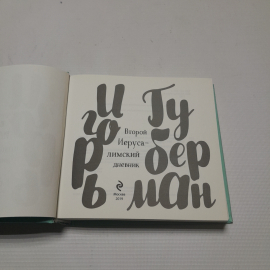 Игорь
Губерман
Второй
Иеруса-
лимский
дневник
Москва